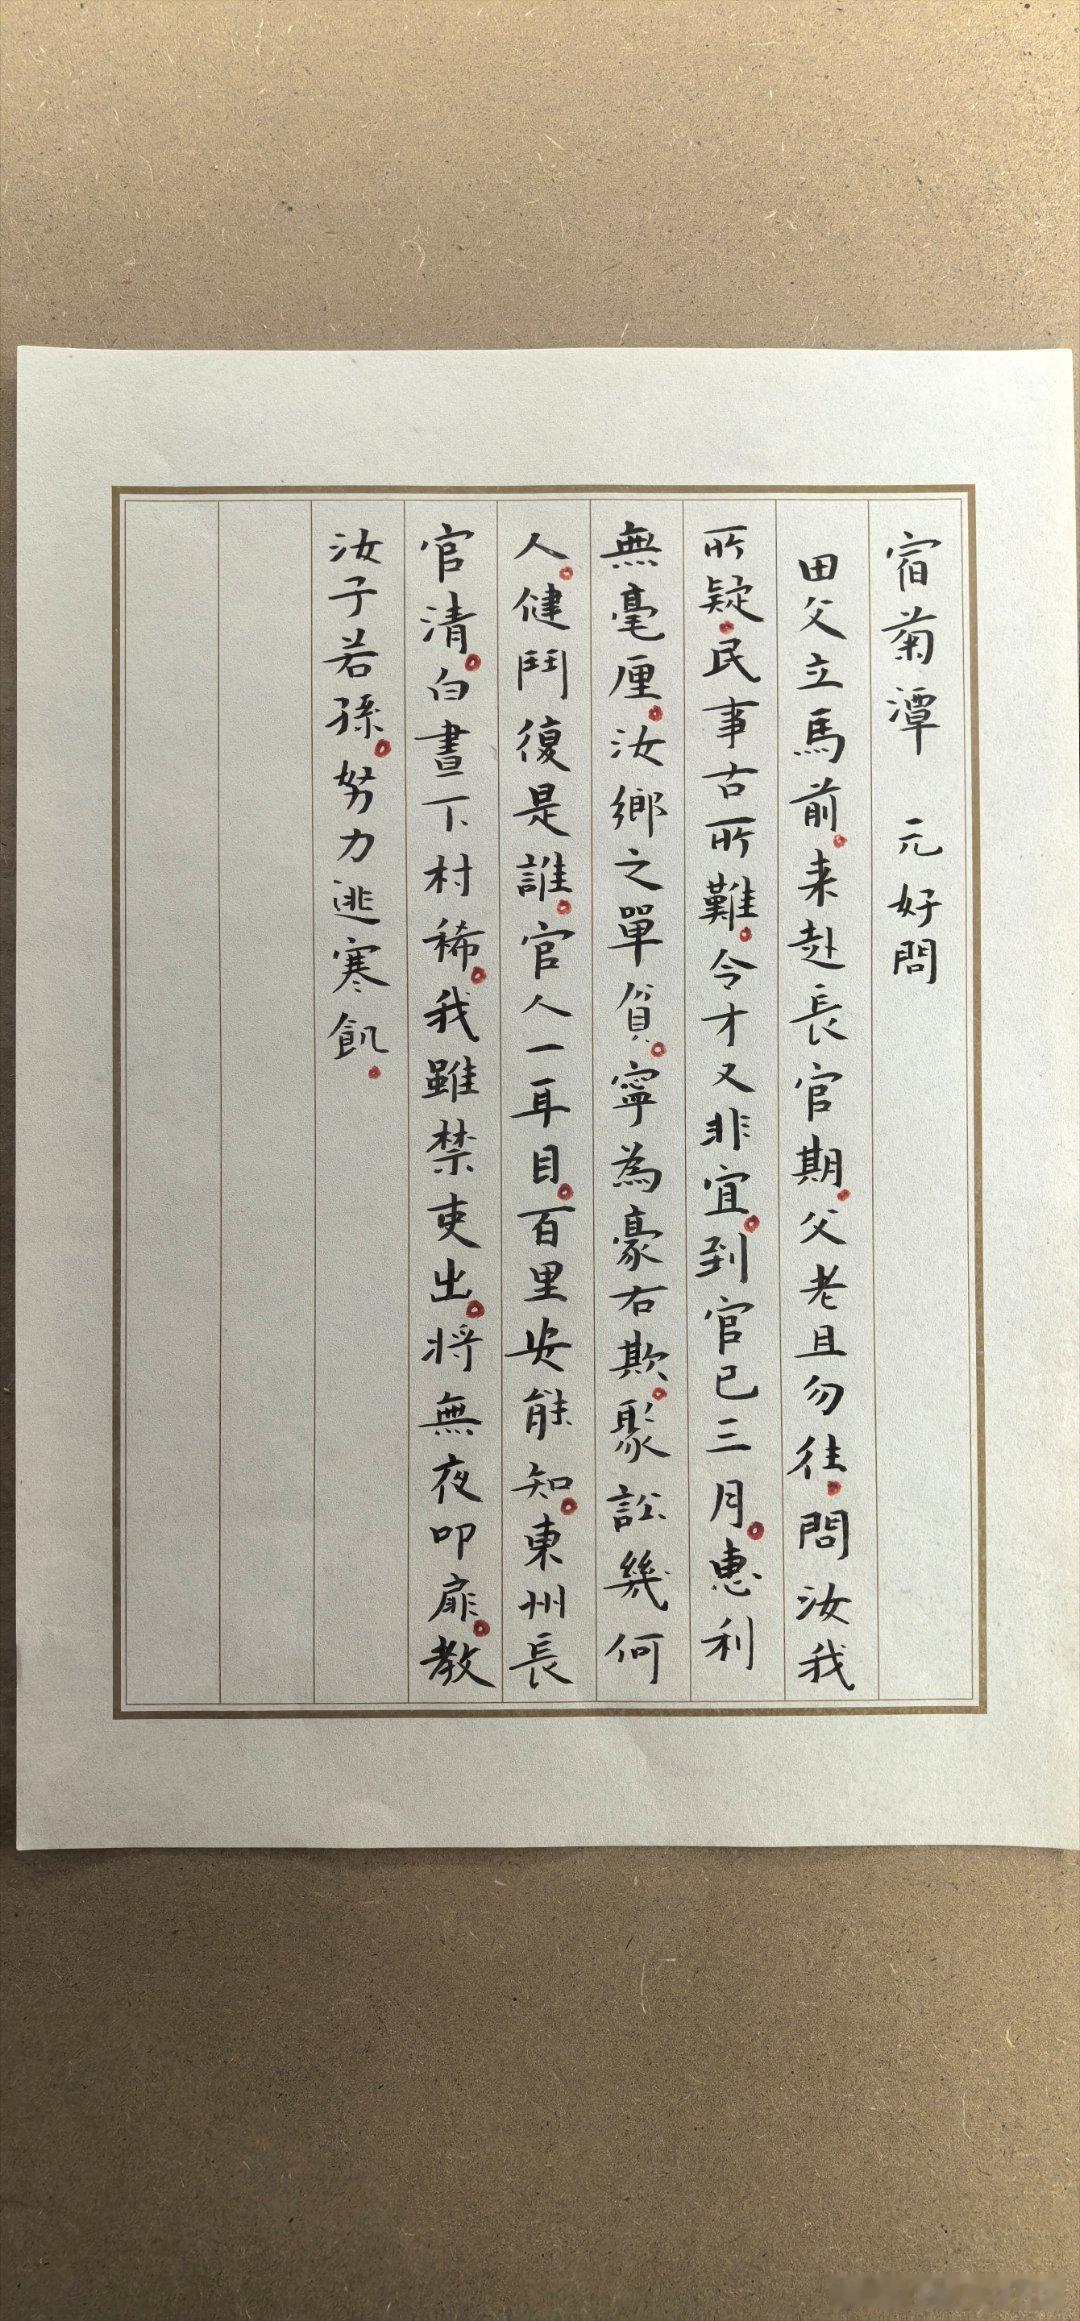 宿菊潭 元好問
田父立馬前来赴長官期父老且勿往問汝我
所疑民事古所難令才又非宜到官已三月惠利
無毫厘汝鄉之單貧寧為豪右欺聚訟幾何
人健鬥復是誰官人一耳目百里安能知東州長
官清白晝下村稀我雖禁吏出將無夜叩扉教
汝子若孫努力逃寒飢